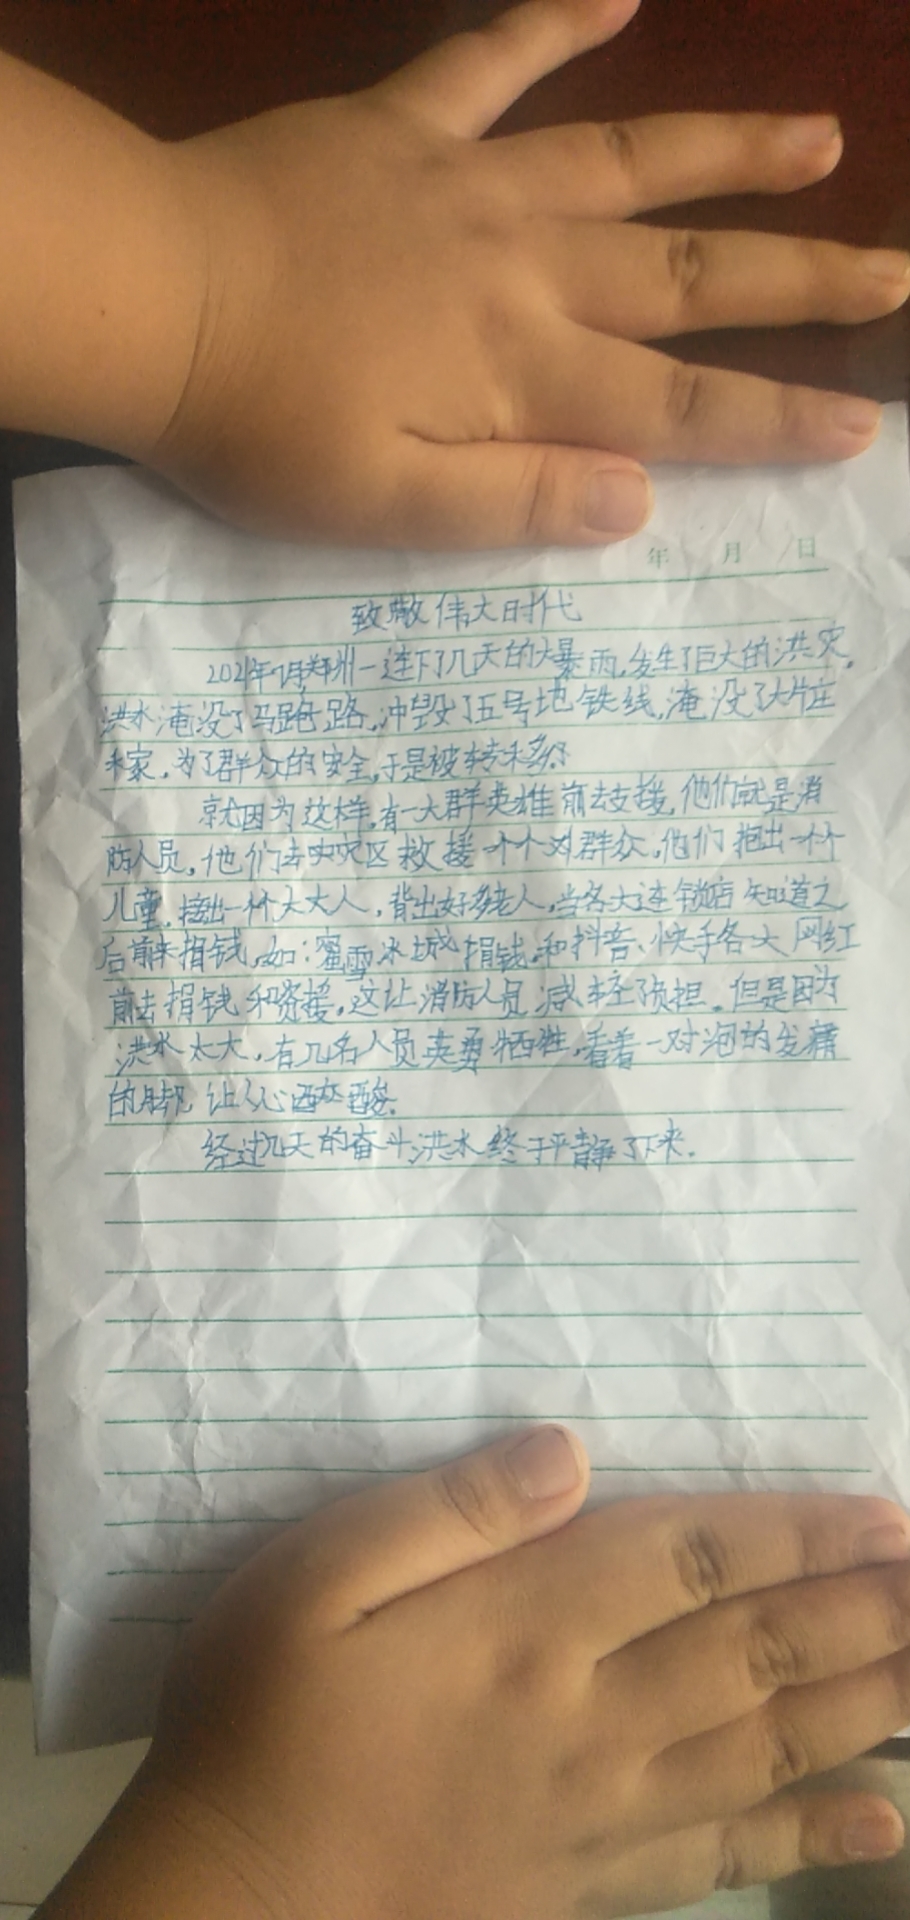 年 月 日
致敬伟大时代
2021年7月郑州一连下了几天的大暴雨,发生了巨大的洪灾,
洪水淹没了马路,冲毁了五号地铁线,淹没了大片庄
家,为了群众的安全,于是被转
就因为这样,有一大群英雄前去支援,他们就是消
防人员,他们去灾区救援一个个群众,他们抱出一个个
儿童,接出一个个大人,背出好多老人,当各大连锁店知道之
后前来捐钱,如:蜜雪冰城捐钱,和抖音、快手各大网红
前去捐钱和资援,这让消防人员减轻了负担。但是因为
洪水太大,有几名人员英勇牺牲,看着一对泡的发
的脚让人心酸
经过几天的奋斗洪水终于平静了下来.